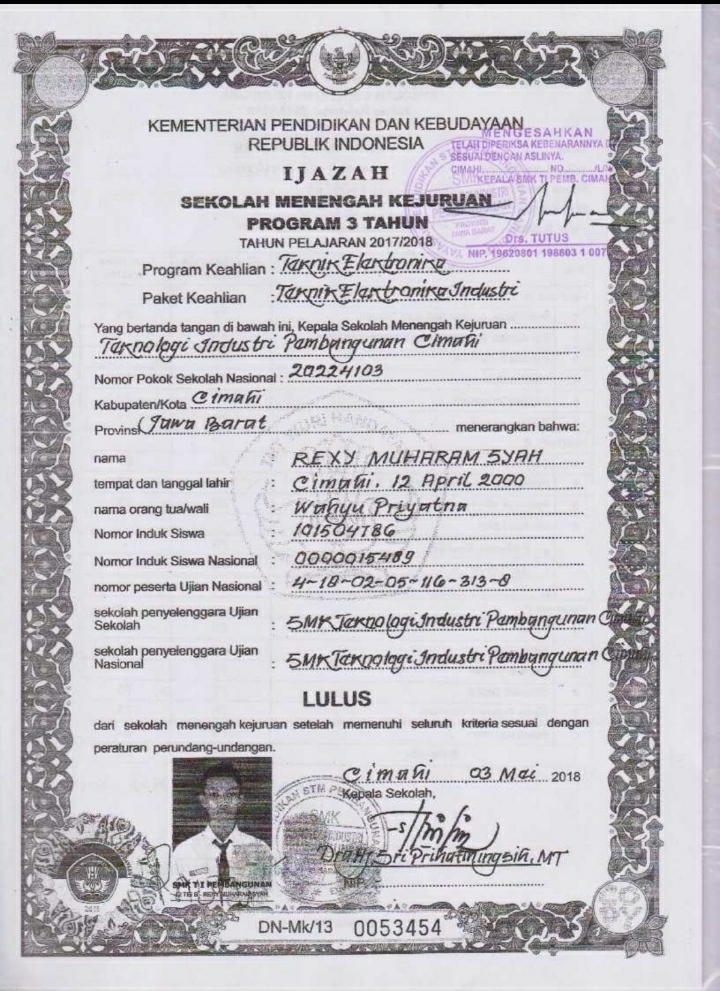 KEMENTERIAN PENDIDIKAN DAN KEBUDAYAAN
REPUBLIK INDONESIA
MENGESAHKAN
TELAH DIPERIKSA KEBENARANNYA D
SESUAI DENGAN ASLINYA.
CIMAHI, NO. /L/
KEPALA SMK TI PEMB. CIMAH
Drs. TUTUS
NIP. 19620801 198603 1 007
IJAZAH
SEKOLAH MENENGAH KEJURUAN
PROGRAM 3 TAHUN
TAHUN PELAJARAN 2017/2018
Program Keahlian : Teknik Elektronika
Paket Keahlian : Teknik Elektronika Industri
Yang bertanda tangan di bawah ini, Kepala Sekolah Menengah Kejuruan
Teknologi Industri Pembangunan Cimahi
Nomor Pokok Sekolah Nasional : 20224103
Kabupaten/Kota Cimahi
Provinsi Jawa Barat menerangkan bahwa:
nama REXY MUHARAM SYAH
tempat dan tanggal lahir : Cimahi, 12 April 2000
nama orang tua/wali : Wahyu Priyatna
Nomor Induk Siswa : 101504786
Nomor Induk Siswa Nasional : 0000015489
nomor peserta Ujian Nasional : 4-18-02-05-116-313-8
sekolah penyelenggara Ujian
Sekolah : SMK Teknologi Industri Pembangunan Cimahi
sekolah penyelenggara Ujian
Nasional : SMK Teknologi Industri Pembangunan Cimahi
LULUS
dari sekolah menengah kejuruan setelah memenuhi seluruh kriteria sesuai dengan
peraturan perundang-undangan.
Cimahi, 03 Mei 2018
Kepala Sekolah,
Dra. Hj. Sri Prihatiningsih, MT
NIP.
SMK T I PEMBANGUNAN
DN-Mk/13 0053454